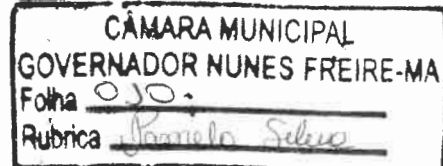 CÂMARA MUNICIPAL
GOVERNADOR NUNES FREIRE-MA
Folha 030.
Rubrica Pamela Silva